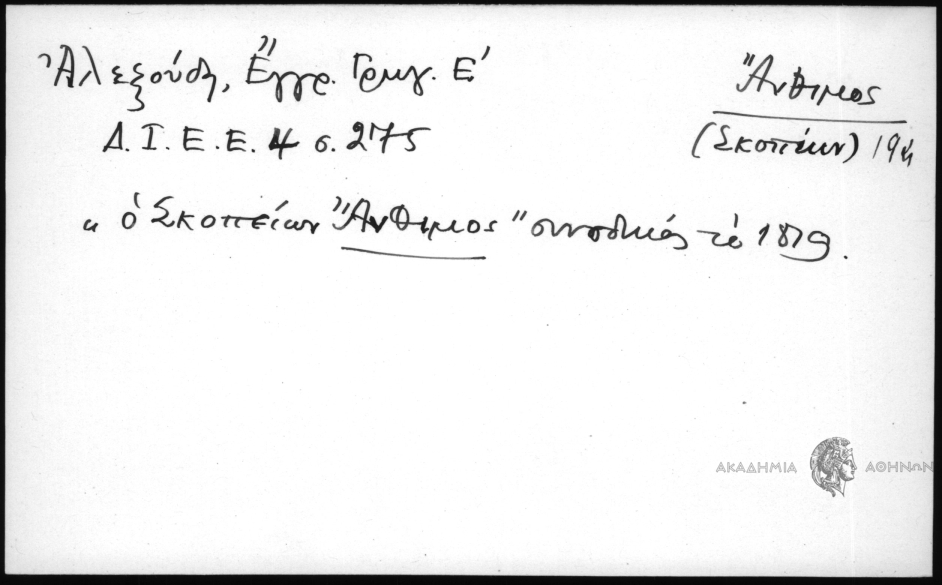 Ἀλεξούδη, Ἔγγρ. Γρηγ. Ε'
Δ. Ι. Ε. Ε. 4 σ. 275
Ἄνθιμος
(Σκοπείων) 19ος
" ὁ Σκοπείων Ἄνθιμος " συνοδικός τό 1819.
ΑΚΑΔΗΜΙΑ ΑΘΗΝΩΝ